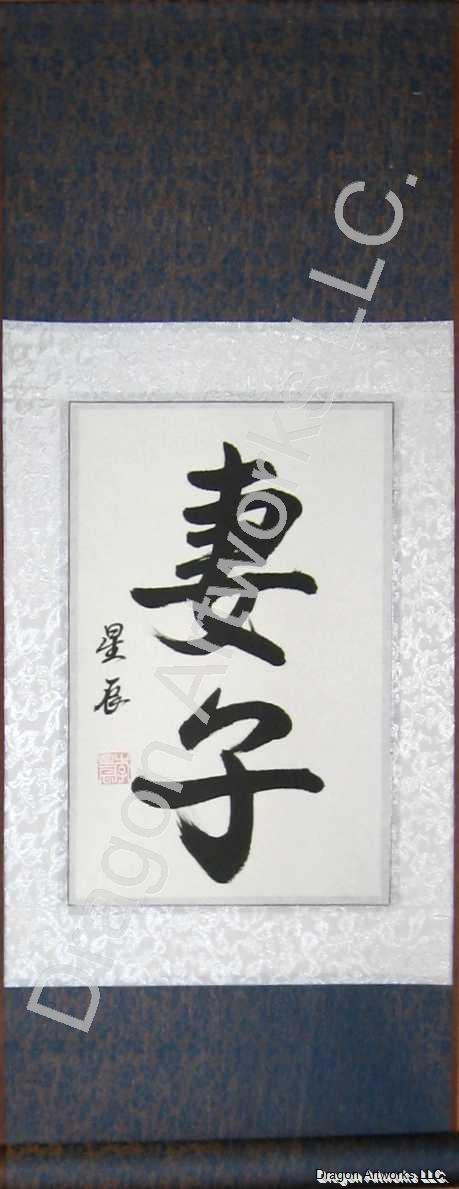 妻子
星辰
Dragon Artworks LLC.
Dragon Artworks LLC